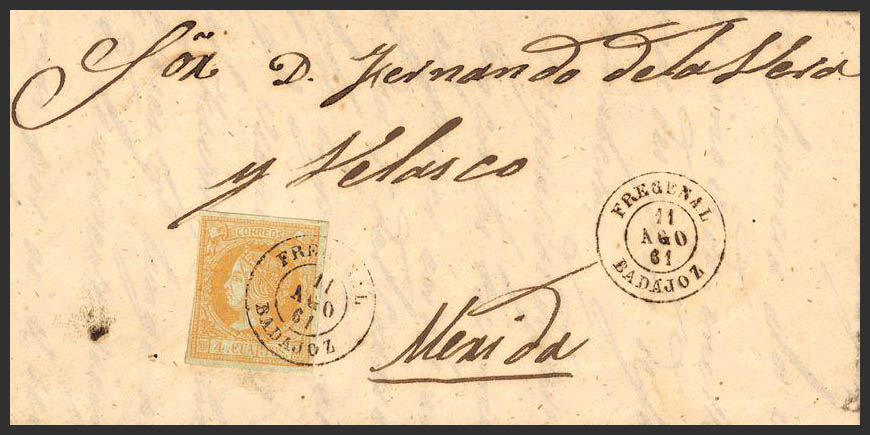 Sōñ D. Fernando de la Vera
y Velasco
Merida
FREGENAL
11
AGO
61
BADAJOZ
CORREOS
4 CUAR
FRE AL
11
AGO
61
BADAJOZ